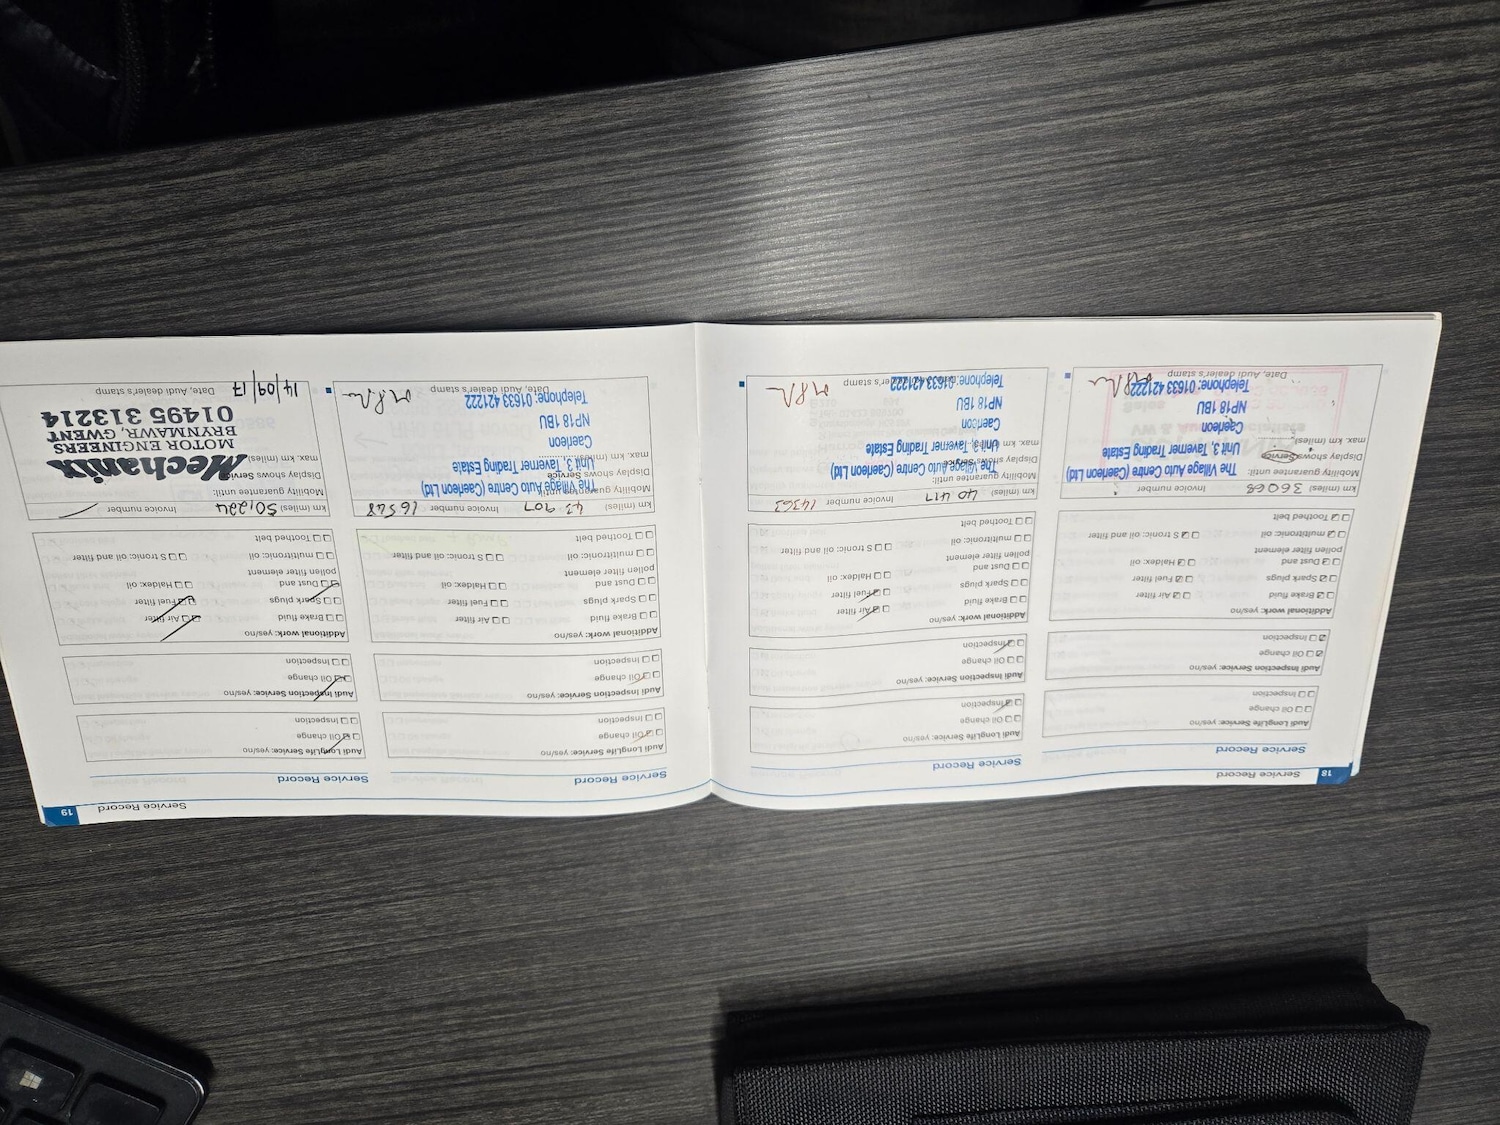 18 Service Record
Service Record
Audi LongLife Service: yes/no
Oil change
Inspection
Audi Inspection Service: yes/no
Oil change
Inspection
Additional work: yes/no
Brake fluid Air filter
Spark plugs Fuel filter
Dust and Haldex: oil
pollen filter element
multitronic: oil S tronic: oil and filter
Toothed belt
km (miles) 36068 Invoice number
Mobility guarantee until:
Display shows Service
max. km (miles)
The Village Auto Centre (Caerleon Ltd)
Unit 3, Taverner Trading Estate
Caerleon
NP18 1BU
Telephone: 01633 421222
Date, Audi dealer's stamp
Service Record
Audi LongLife Service: yes/no
Oil change
Inspection
Audi Inspection Service: yes/no
Oil change
Inspection
Additional work: yes/no
Brake fluid Air filter
Spark plugs Fuel filter
Dust and Haldex: oil
pollen filter element
multitronic: oil S tronic: oil and filter
Toothed belt
km (miles) 40 417 Invoice number 14363
Mobility guarantee until:
Display shows Service
max. km (miles)
The Village Auto Centre (Caerleon Ltd)
Unit 3, Taverner Trading Estate
Caerleon
NP18 1BU
Telephone: 01633 421222
Date, Audi dealer's stamp
Service Record 19
Service Record
Audi LongLife Service: yes/no
Oil change
Inspection
Audi Inspection Service: yes/no
Oil change
Inspection
Additional work: yes/no
Brake fluid Air filter
Spark plugs Fuel filter
Dust and Haldex: oil
pollen filter element
multitronic: oil S tronic: oil and filter
Toothed belt
km (miles) 43 907 Invoice number 16548
Mobility guarantee until:
Display shows Service
max. km (miles)
The Village Auto Centre (Caerleon Ltd)
Unit 3, Taverner Trading Estate
Caerleon
NP18 1BU
Telephone: 01633 421222
Date, Audi dealer's stamp
Service Record
Audi LongLife Service: yes/no
Oil change
Inspection
Audi Inspection Service: yes/no
Oil change
Inspection
Additional work: yes/no
Brake fluid Air filter
Spark plugs Fuel filter
Dust and Haldex: oil
pollen filter element
multitronic: oil S tronic: oil and filter
Toothed belt
km (miles) 50,224 Invoice number
Mobility guarantee until:
Display shows Service
max. km (miles)
Mechanix
MOTOR ENGINEERS
BRYNMAWR, GWENT
01495 313214
Date, Audi dealer's stamp 14/09/17